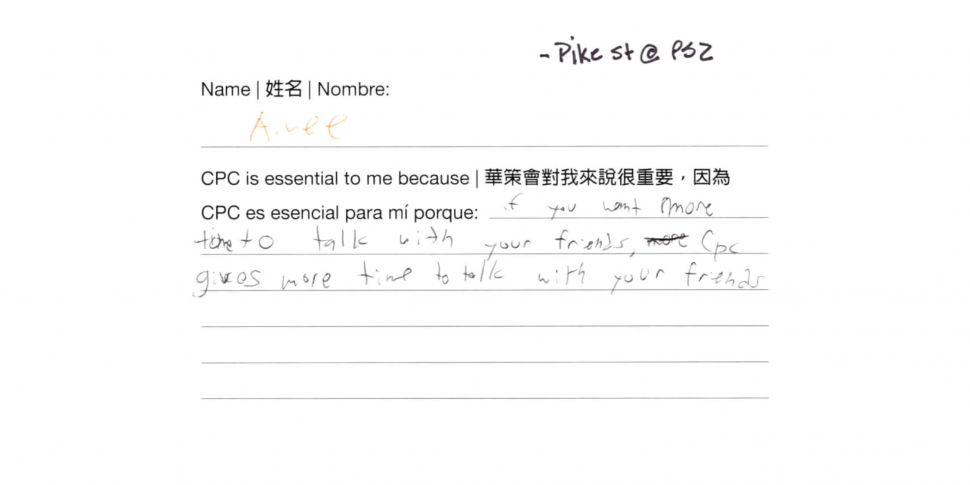 - Pike St @ PS2
Name | 姓名 | Nombre:
A. Lee
CPC is essential to me because | 華策會對我來說很重要，因為
CPC es esencial para mí porque: if you want more
time to talk with your friends, more Cpc
gives more time to talk with your friends